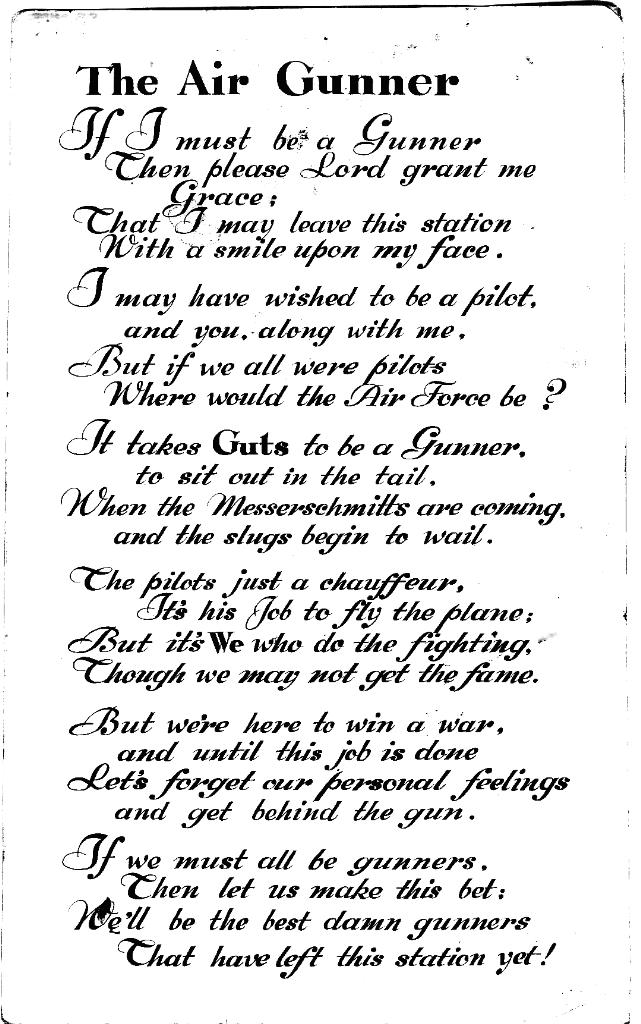 The Air Gunner
If I must be a Gunner
Then please Lord grant me
Grace;
That I may leave this station
With a smile upon my face.
I may have wished to be a pilot,
and you, along with me,
But if we all were pilots
Where would the Air Force be ?
It takes Guts to be a Gunner,
to sit out in the tail,
When the Messerschmitts are coming,
and the slugs begin to wail.
The pilots just a chauffeur,
It's his Job to fly the plane;
But it's We who do the fighting,
Though we may not get the fame.
But we're here to win a war,
and until this job is done
Let's forget our personal feelings
and get behind the gun.
If we must all be gunners,
Then let us make this bet;
We'll be the best damn gunners
That have left this station yet!